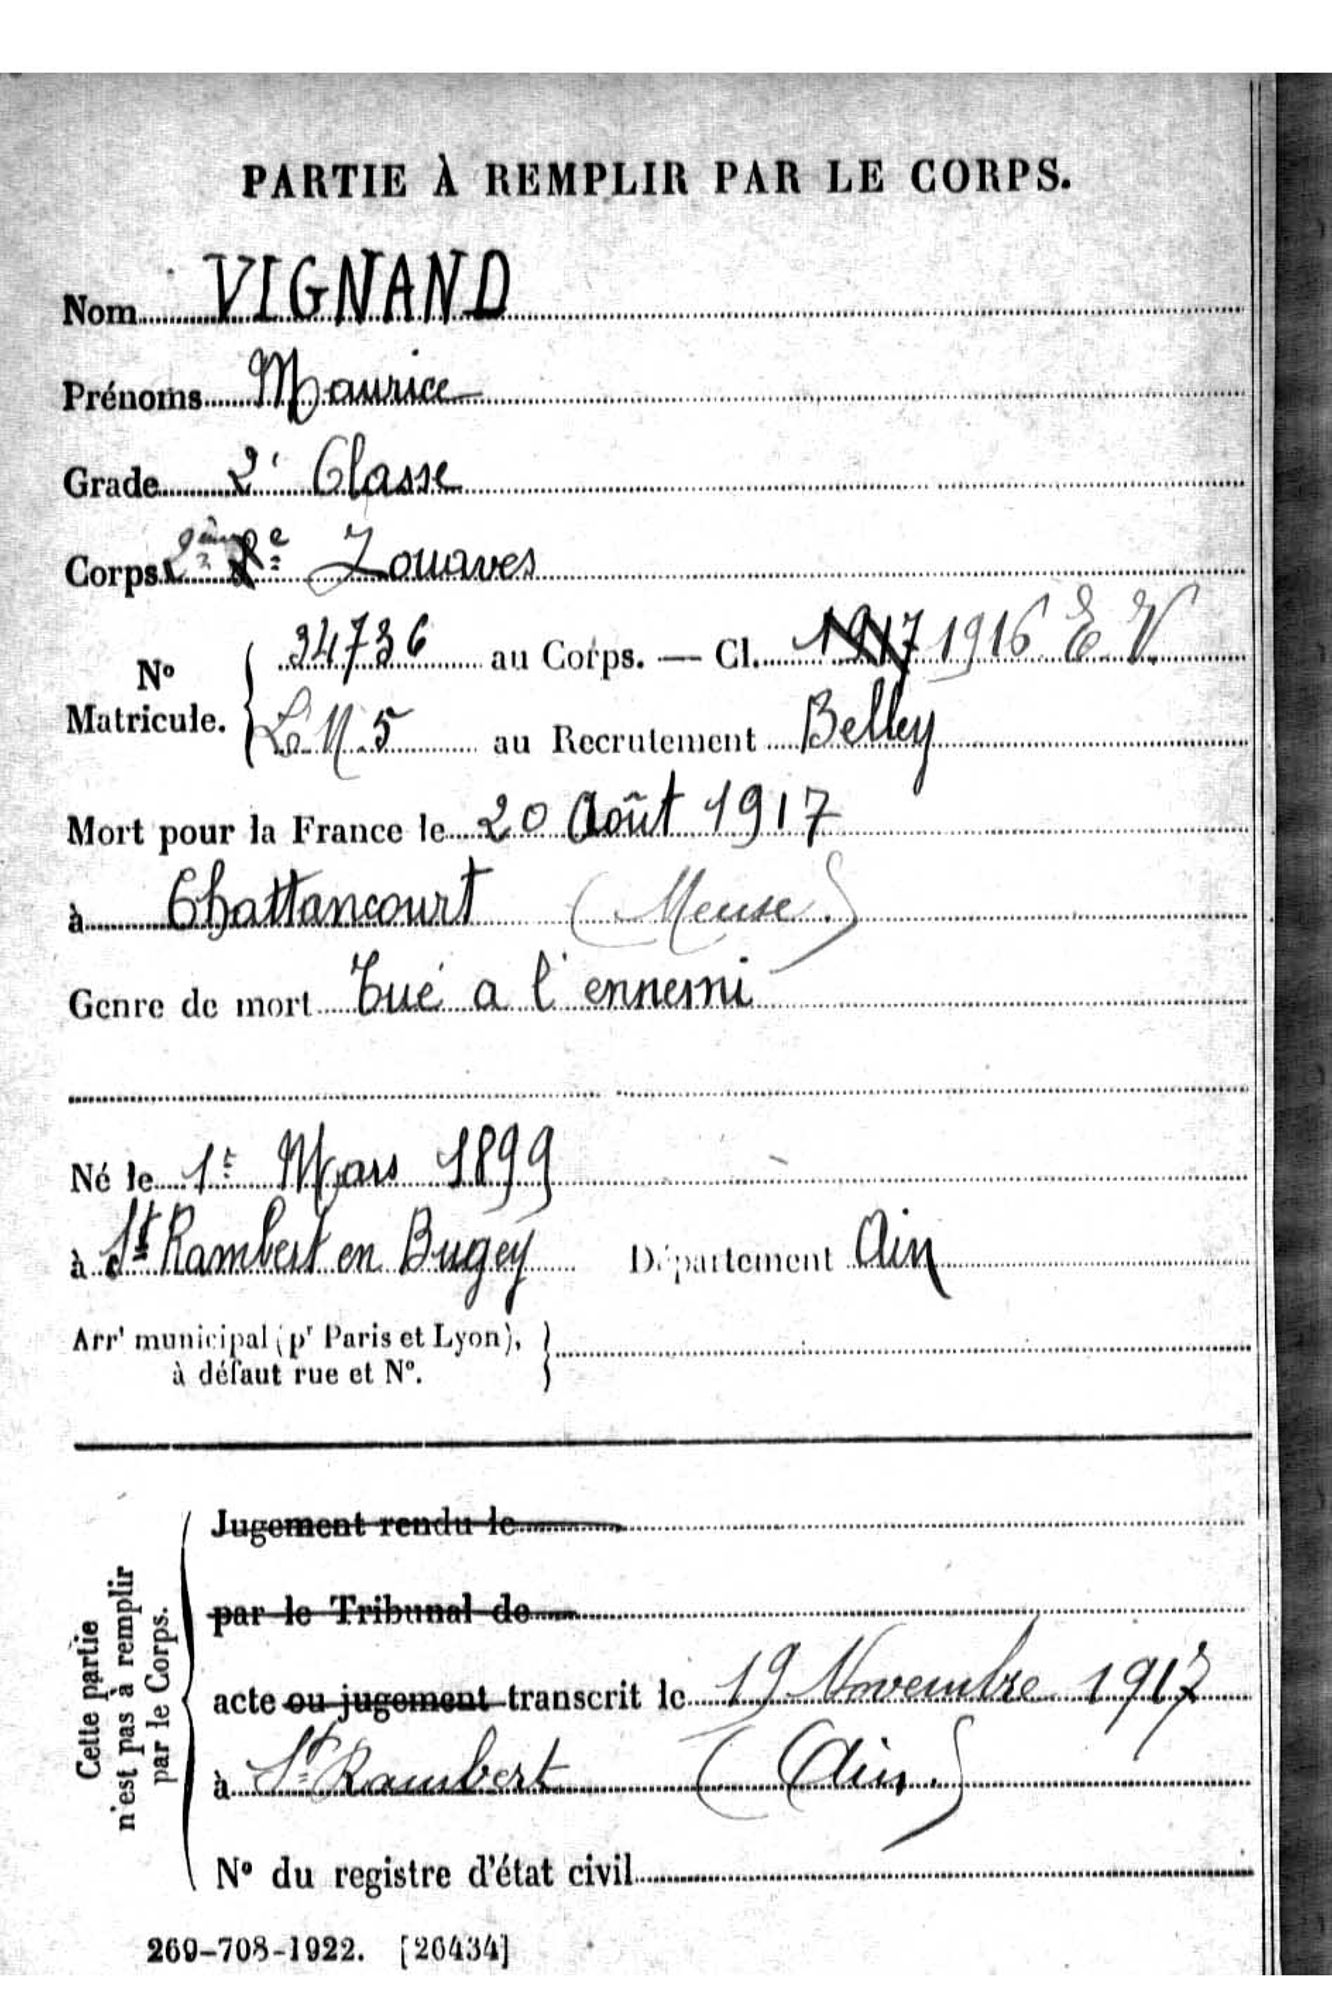 PARTIE À REMPLIR PAR LE CORPS.
Nom VIGNAND
Prénoms Maurice
Grade 2e Classe
Corps 2ème Zouaves
No Matricule. 34736 au Corps. — Cl. 1917 1916 E V.
5 au Recrutement Belley
Mort pour la France le 20 Août 1917
à Chattancourt (Meuse)
Genre de mort Tué a l'ennemi
Né le 1er Mars 1899
à St Rambert en Bugey Département Ain
Arrt municipal (pr Paris et Lyon),
à défaut rue et No.
Cette partie
n'est pas à remplir
par le Corps.
Jugement rendu le
par le Tribunal de
acte ou jugement transcrit le 19 Novembre 1917
à St Rambert (Ain)
No du registre d'état civil
269-708-1922. [26434]